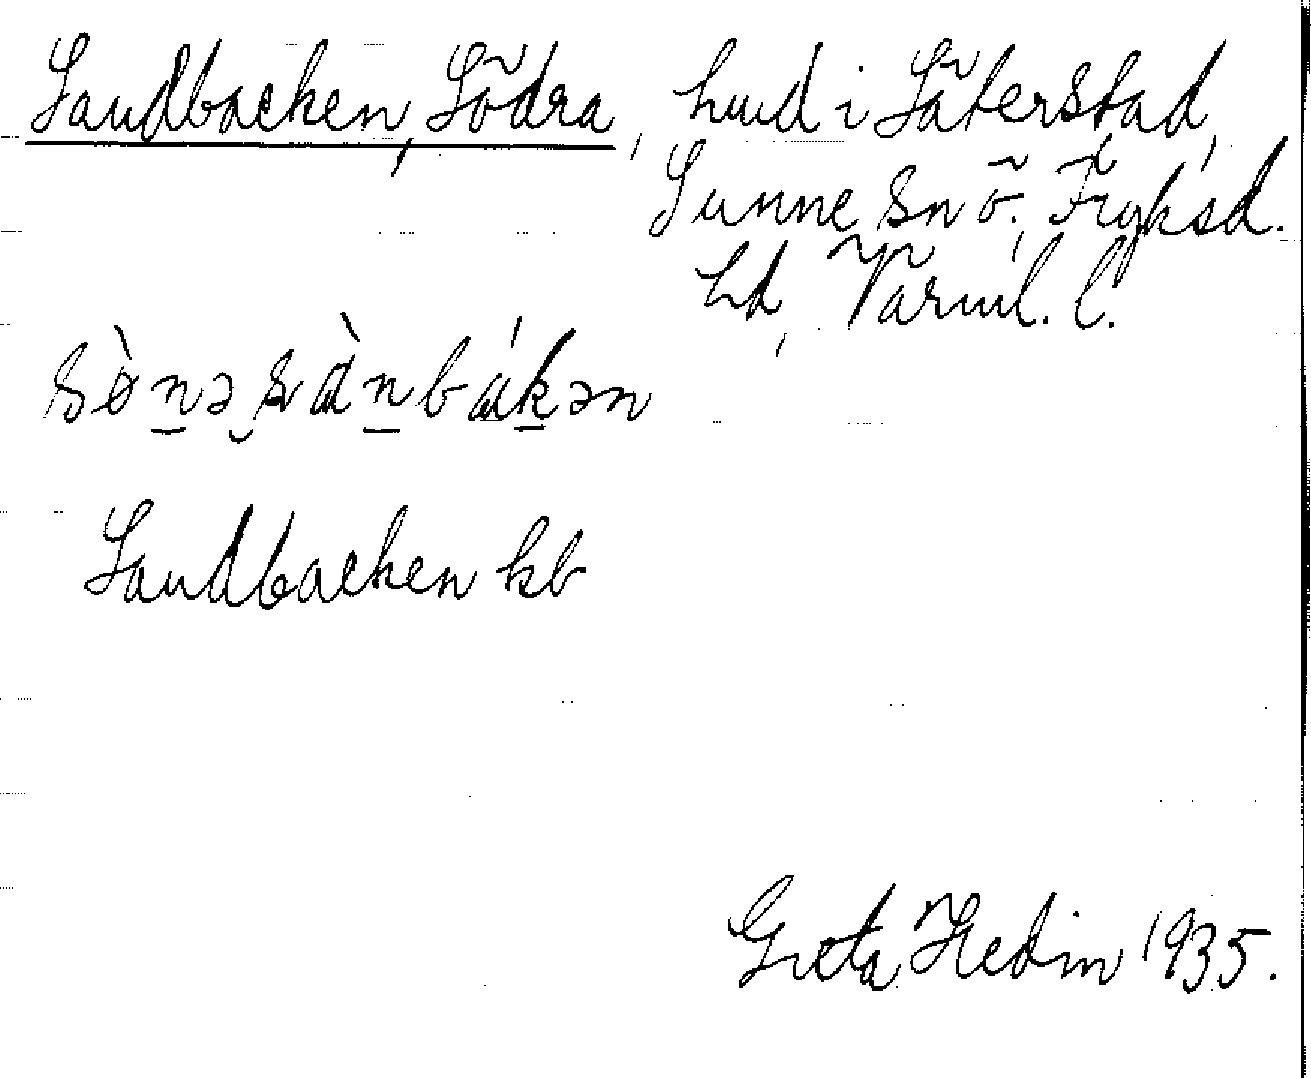 Sandbacken, Södra, hmd i Säterstad,
Sunne sn ö. Fryksd.
hd, Värml. l.
sø̀n̲ə sɑ̀n̲bɑ́k̲ən
Sandbacken kb
Greta Hedin 1935.